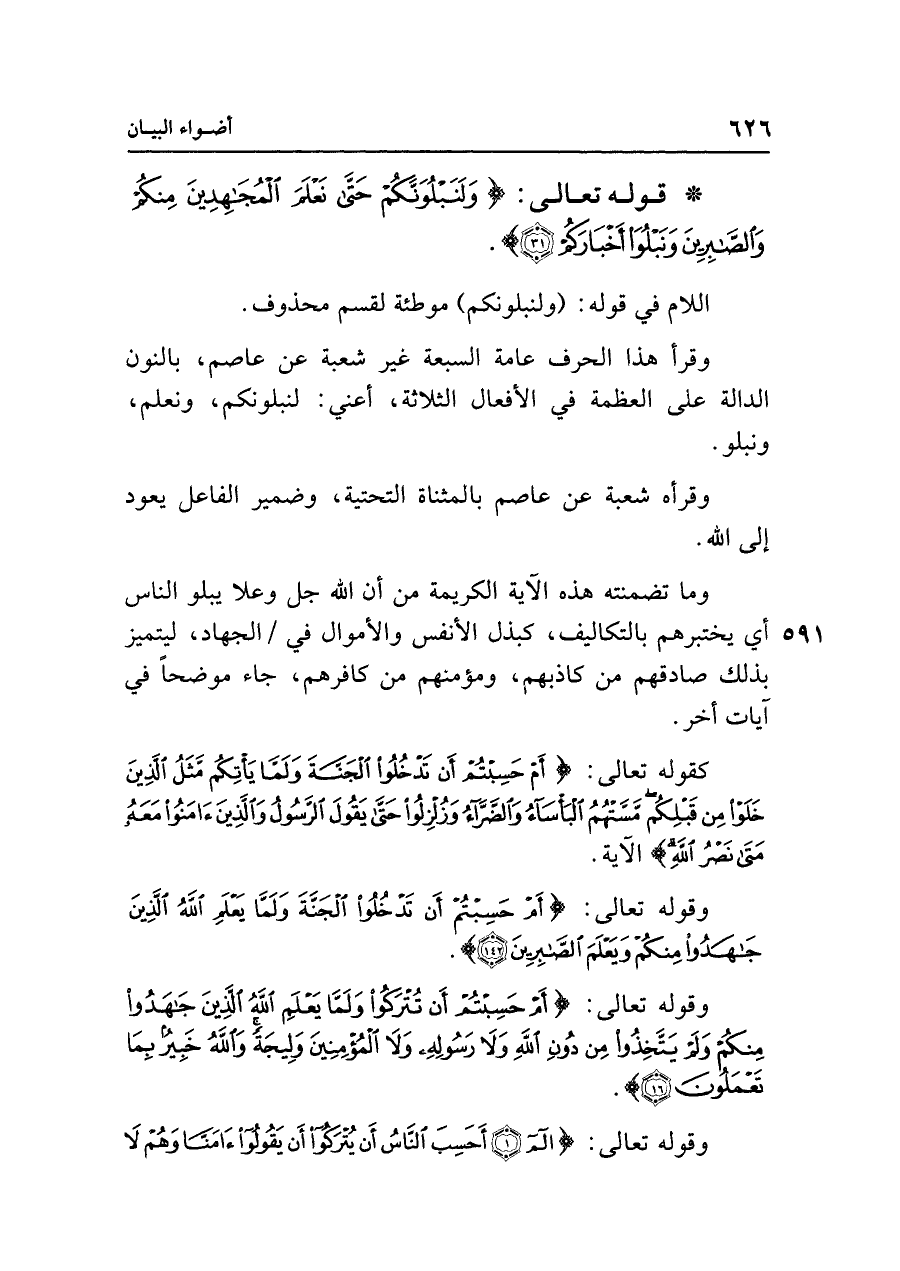 ٦٢٦ أضـواء البيـان
* قـولـه تعـالـى: ﴿ وَلَنَبْلُوَنَّكُمْ حَتَّىٰ نَعْلَمَ ٱلْمُجَٰهِدِينَ مِنكُمْ
وَٱلصَّٰبِرِينَ وَنَبْلُوَا۟ أَخْبَارَكُمْ ٣١﴾ .
اللام في قوله: (ولنبلونكم) موطئة لقسم محذوف.
وقرأ هذا الحرف عامة السبعة غير شعبة عن عاصم، بالنون
الدالة على العظمة في الأفعال الثلاثة، أعني: لنبلونكم، ونعلم،
ونبلو.
وقرأه شعبة عن عاصم بالمثناة التحتية، وضمير الفاعل يعود
إلى الله.
وما تضمنته هذه الآية الكريمة من أن الله جل وعلا يبلو الناس
٥٩١ أي يختبرهم بالتكاليف، كبذل الأنفس والأموال في / الجهاد، ليتميز
بذلك صادقهم من كاذبهم، ومؤمنهم من كافرهم، جاء موضحاً في
آيات أخر.
كقوله تعالى: ﴿ أَمْ حَسِبْتُمْ أَن تَدْخُلُوا۟ ٱلْجَنَّةَ وَلَمَّا يَأْتِكُم مَّثَلُ ٱلَّذِينَ
خَلَوْا۟ مِن قَبْلِكُم ۖ مَّسَّتْهُمُ ٱلْبَأْسَآءُ وَٱلضَّرَّآءُ وَزُلْزِلُوا۟ حَتَّىٰ يَقُولَ ٱلرَّسُولُ وَٱلَّذِينَ ءَامَنُوا۟ مَعَهُۥ
مَتَىٰ نَصْرُ ٱللَّهِ ۗ﴾ الآية.
وقوله تعالى: ﴿ أَمْ حَسِبْتُمْ أَن تَدْخُلُوا۟ ٱلْجَنَّةَ وَلَمَّا يَعْلَمِ ٱللَّهُ ٱلَّذِينَ
جَٰهَدُوا۟ مِنكُمْ وَيَعْلَمَ ٱلصَّٰبِرِينَ ١٤٢﴾ .
وقوله تعالى: ﴿ أَمْ حَسِبْتُمْ أَن تُتْرَكُوا۟ وَلَمَّا يَعْلَمِ ٱللَّهُ ٱلَّذِينَ جَٰهَدُوا۟
مِنكُمْ وَلَمْ يَتَّخِذُوا۟ مِن دُونِ ٱللَّهِ وَلَا رَسُولِهِۦ وَلَا ٱلْمُؤْمِنِينَ وَلِيجَةً ۚ وَٱللَّهُ خَبِيرٌۢ بِمَا
تَعْمَلُونَ ١٦﴾ .
وقوله تعالى: ﴿ الٓمٓ ١ أَحَسِبَ ٱلنَّاسُ أَن يُتْرَكُوٓا۟ أَن يَقُولُوٓا۟ ءَامَنَّا وَهُمْ لَا